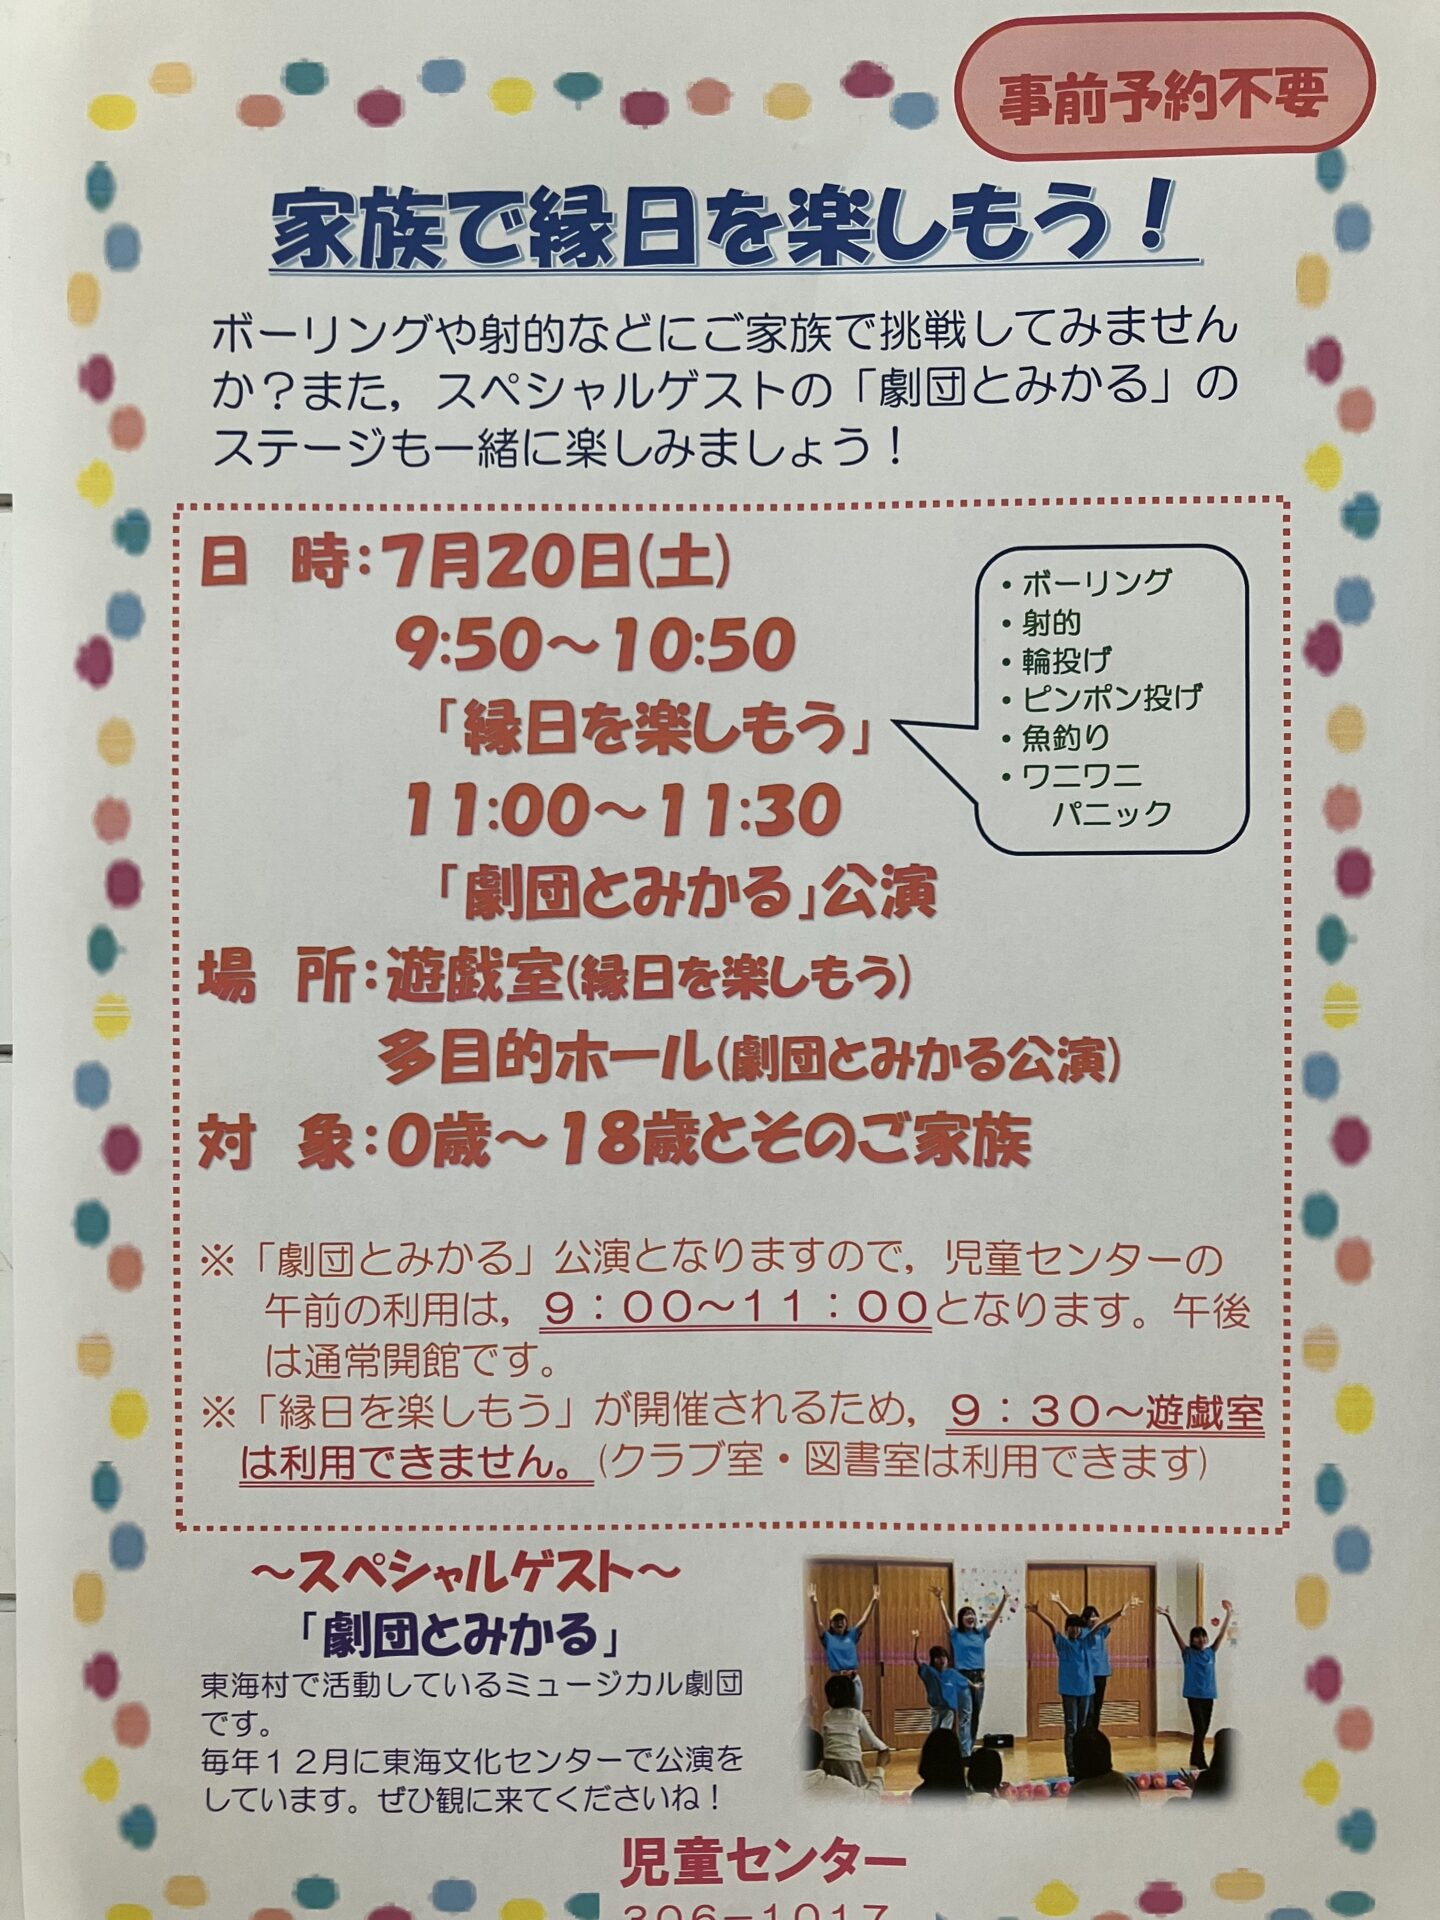 事前予約不要
家族で縁日を楽しもう！
ボーリングや射的などにご家族で挑戦してみません
か？また，スペシャルゲストの「劇団とみかる」の
ステージも一緒に楽しみましょう！
日　時：7月20日(土)
9:50～10:50
「縁日を楽しもう」
11:00～11:30
「劇団とみかる」公演
・ボーリング
・射的
・輪投げ
・ピンポン投げ
・魚釣り
・ワニワニ
パニック
場　所：遊戯室(縁日を楽しもう)
多目的ホール(劇団とみかる公演)
対　象：0歳～18歳とそのご家族
※「劇団とみかる」公演となりますので，児童センターの
午前の利用は，９：００～１１：００となります。午後
は通常開館です。
※「縁日を楽しもう」が開催されるため，９：３０～遊戯室
は利用できません。(クラブ室・図書室は利用できます)
～スペシャルゲスト～
「劇団とみかる」
東海村で活動しているミュージカル劇団
です。
毎年１２月に東海文化センターで公演を
しています。ぜひ観に来てくださいね！
児童センター
３０６－１０１７